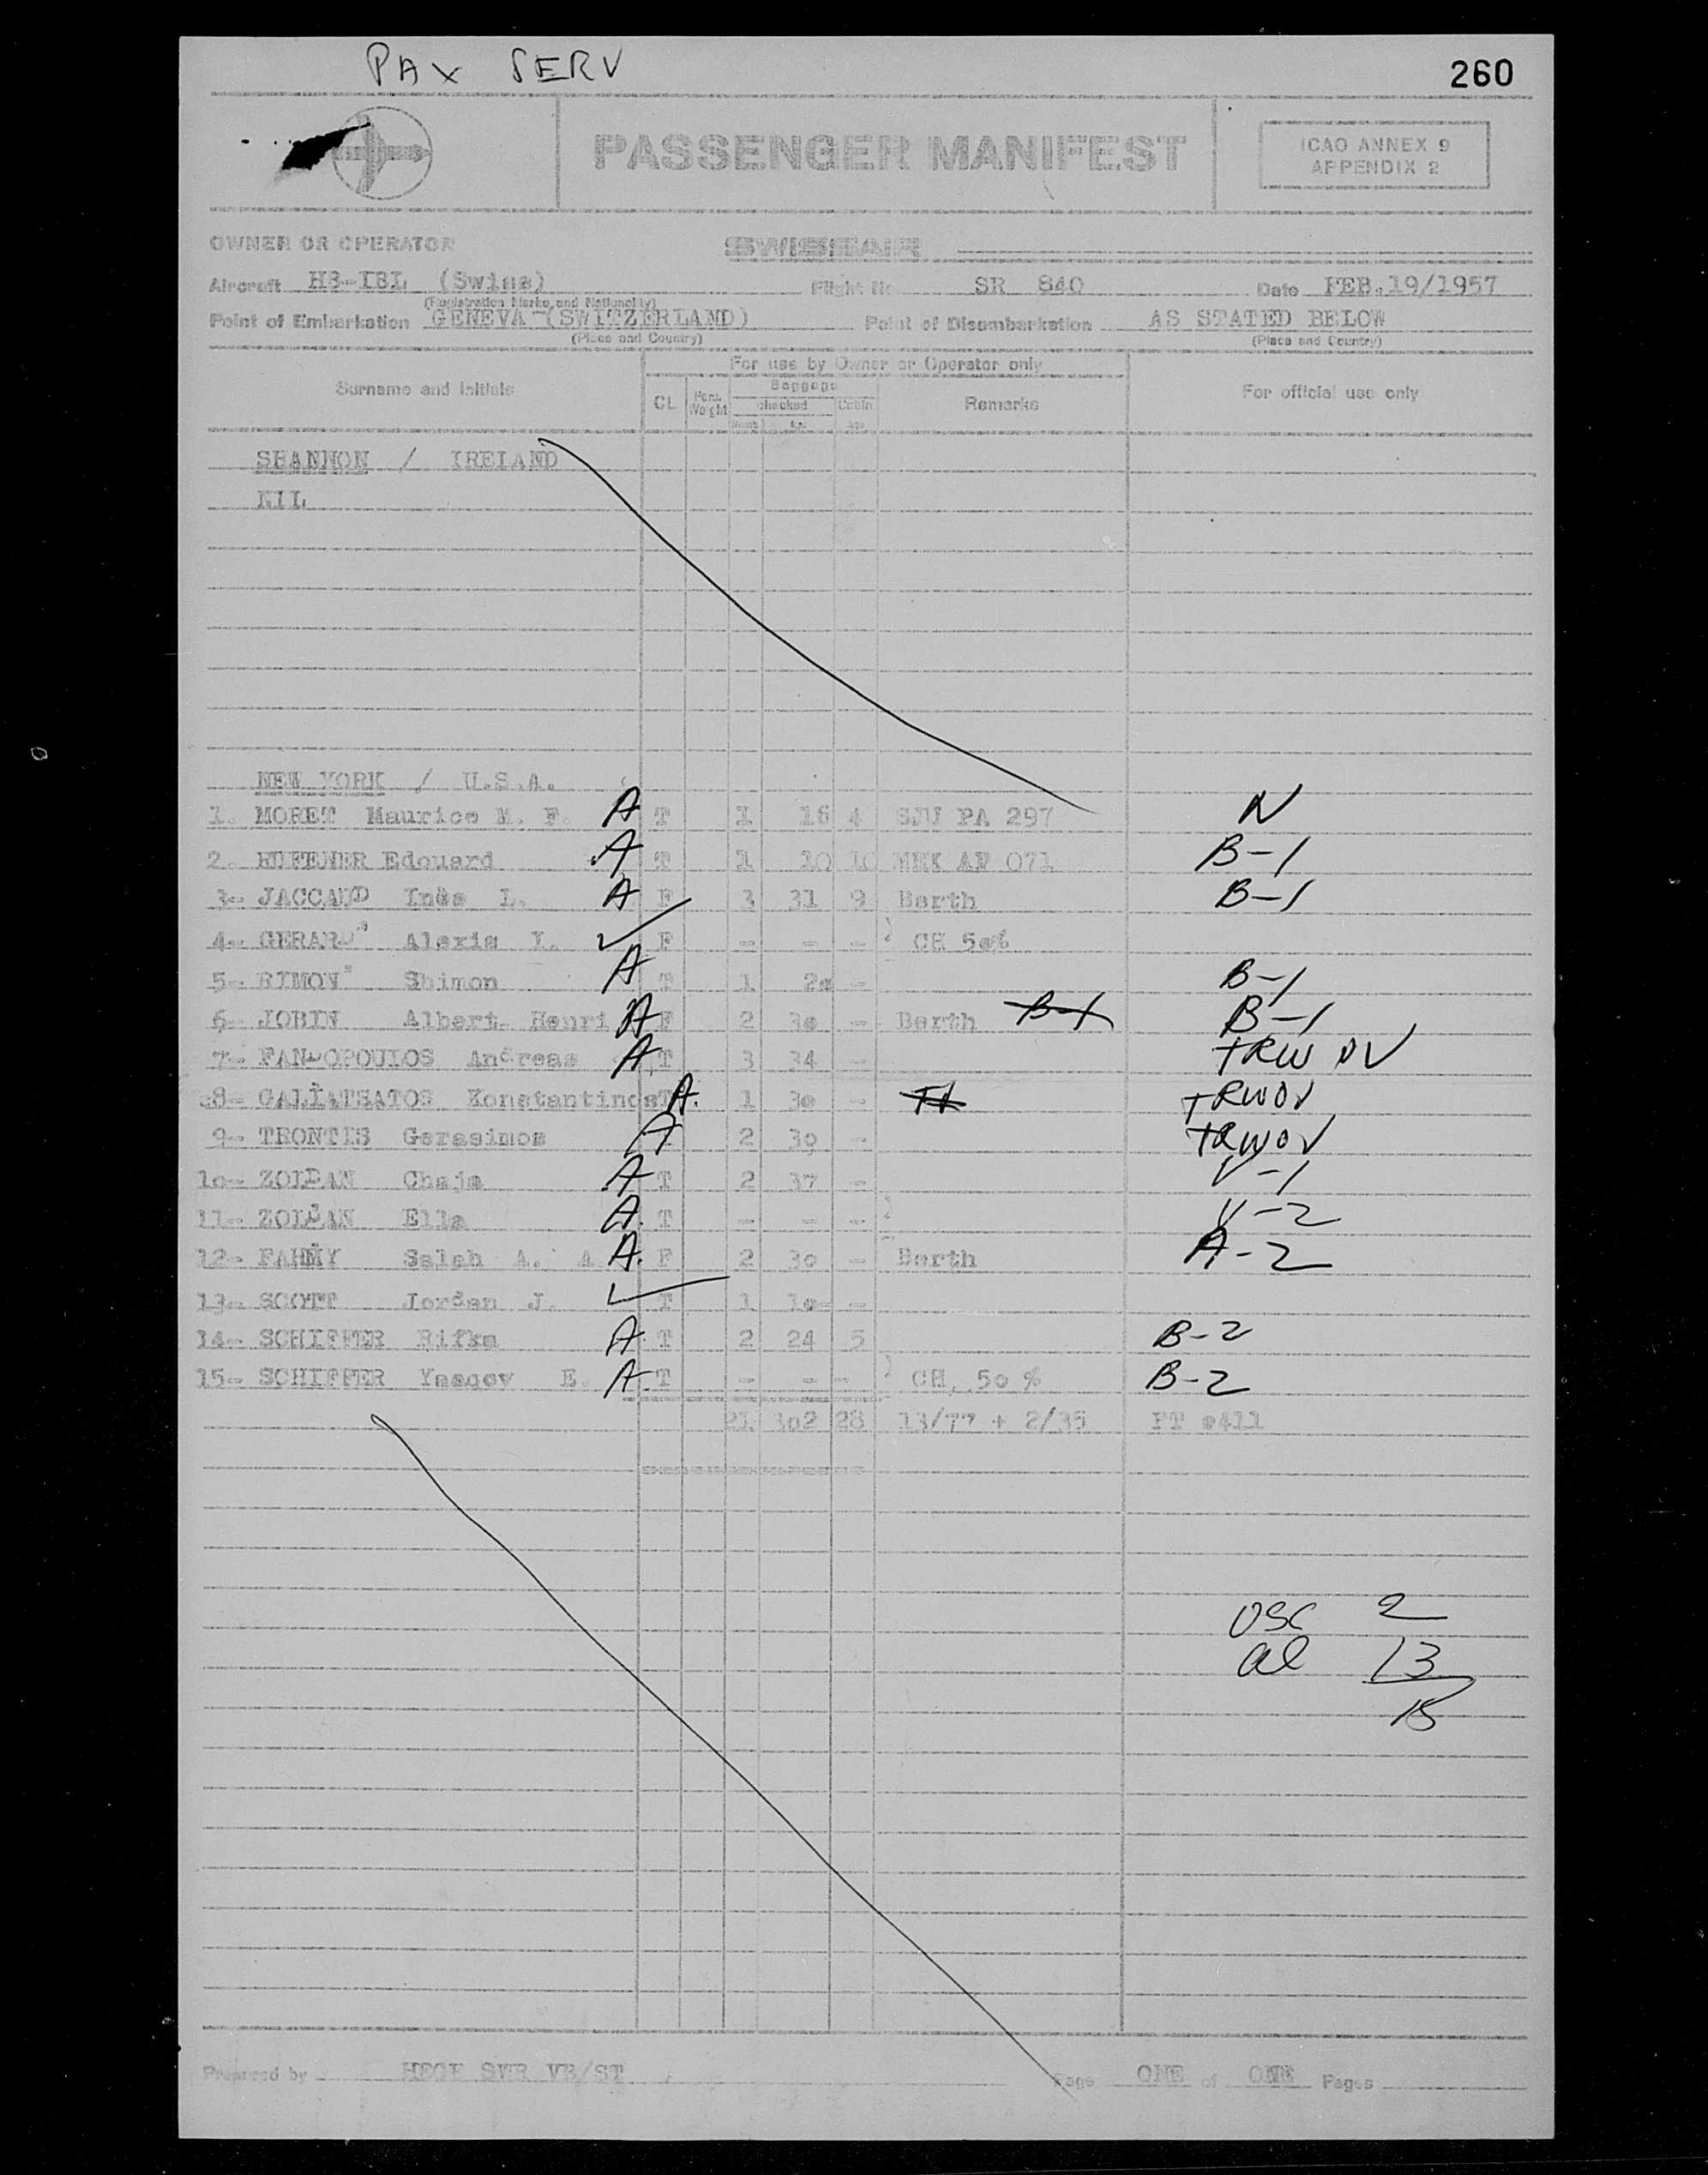 PAX SERV
260
PASSENGER MANIFEST
ICAO ANNEX 9
APPENDIX 2
OWNER OR OPERATOR SWISSAIR
Aircraft HB-IBL (Swiss) Flight No SR 840 Date FEB.19/1957
(Registration Marks and Nationality)
Point of Embarkation GENEVA (SWITZERLAND) Point of Disembarkation AS STATED BELOW
(Place and Country) (Place and Country)
For use by Owner or Operator only
Surname and Initials CL Pers. Weight Baggage checked Cabin Remarks For official use only
SHANNON / IRELAND
NIL
NEW YORK / U.S.A.
1. MORET Maurice M. F. A T 1 16 4 SJU PA 297 N
2. RUFENER Edouard A T 1 10 10 MEX AF 071 B-1
3- JACCAUD Inès L. A F 3 31 9 Berth B-1
4- GERARD Alexis I. ✓ F - - - ) CH 5o%
5- RIMON Shimon A T 1 2o - B-1
6- JOBIN Albert Henri A F 2 3o - Berth B-1 B-1
7- Andreas A T 3 34 - TRWOV
8- GALIATSATOS Konstantinos T A. 1 3o - TRWOV
9- TRONTIS Gerasimos A 2 3o - TRWOV
1o- ZOLDAN Chaja A T 2 37 - V-1
11- ZOLDAN Ella A. T - - - ) V-2
12- FAHMY Saleh A. A. A. F 2 3o - Berth A-2
13- SCOTT Jordan J. ✓ T 1 1o - -
14- SCHIFFER Rifka A T 2 24 5 B-2
15- SCHIFFER Yaacov E. A. T - - - ) CH. 5o % B-2
21 3o2 28 13/77 + 2/35 FT o411
USC 2
al 13
15
Prepared by Page ONE of ONE Pages